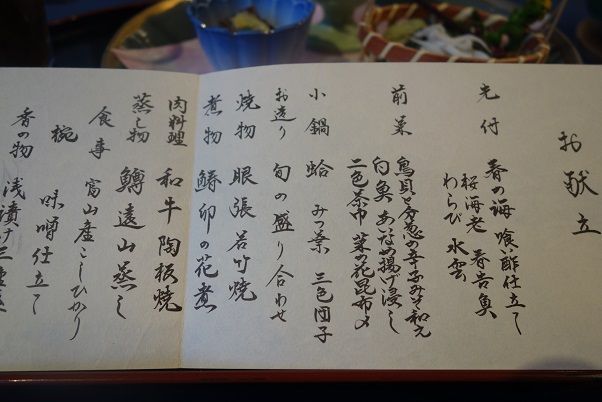 お献立
先付
春の海 喰い酢仕立て
桜海老 春告魚
わらび 水雲
前菜
鳥貝と分葱の辛子みそ和え
白魚 あなめ揚げ浸し
二色茶巾 菜の花昆布〆
小鍋 蛤 みつ葉 三色団子
お造り 旬の盛り合わせ
焼物 眼張若竹焼
煮物 鰆卯の花煮
肉料理 和牛陶板焼
蒸し物 鱒遠山蒸し
食事 富山産こしひかり
椀 味噌仕立て
香の物 浅漬け三種